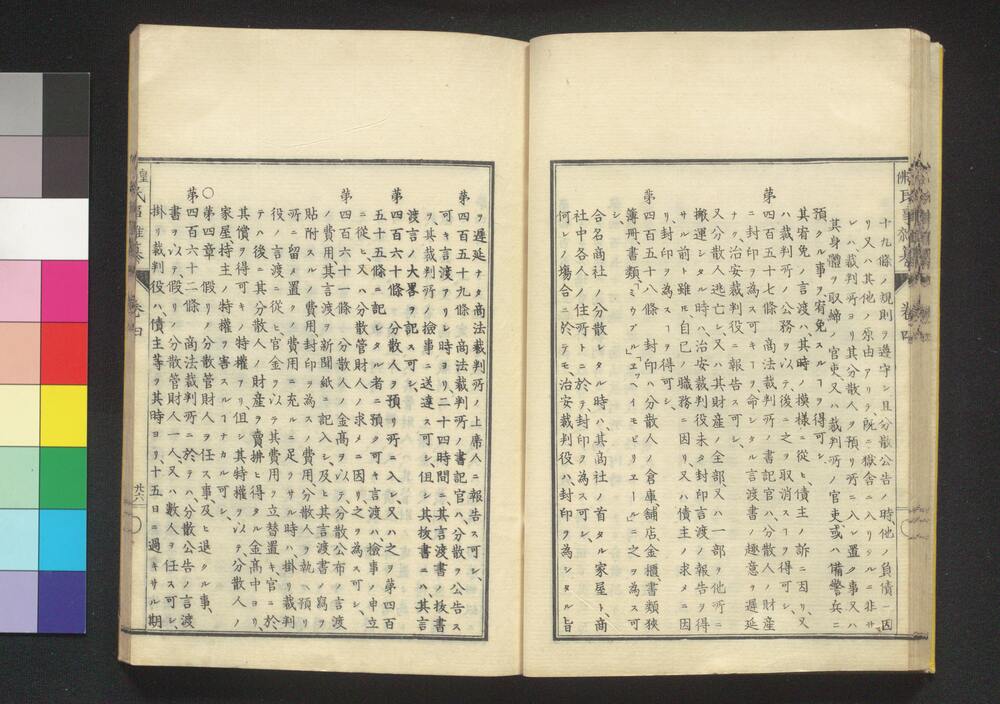 十九條ノ規則ヲ遵守シ且分散公告ノ時、他ノ負債ニ因
リ又ハ其他ノ原由アリテ、既ニ獄舎ニ入リタルニ非サ
レハ裁判所ヨリ其分散人ヲ預リ所ニ入レ置ク事又ハ
其身體ヲ取締ノ官吏又ハ裁判所ノ官吏、或ハ備警兵ニ
預クル事ヲ宥免スルヿヲ得可シ、
其宥免ノ言渡ハ、其時ノ模樣ニ從ヒ債主ノ訴ニ因リ、又
ハ裁判所ノ公務ヲ以テ、後ニ之ヲ取消スヿヲ得可シ、
第四百五十七條 高法裁判所ノ書記官ハ、分散人ノ財産
ニ封印ヲ為ス可キヿヲ、命シタル言渡書ノ趣意ヲ遲延
ナク、治安裁判役ニ報告ス可シ、
又分散人逃亡シ、又ハ其財産ノ全部又ハ一部ヲ他所ニ
搬運シタル時ハ、治安裁判役未タ封印言渡ノ報告ヲ得
サル前ト雖𪜈自己ノ職務ニ因リ又ハ債主ノ求メニ因
リ、封印ヲ為スヿヲ得可シ、
第四百五十八條 封印ハ分散人ノ倉庫、舗店、金櫃、書類、狹
簿冊書類「ミウブル」「エッヘイモビリエール」ニ之ヲ為ス可
シ、
合名商社ノ分散シタル時ハ、其商社ノ首タル家屋ト、商
社中各人ノ住所トニ於テ、封印ヲ為ス可シ、
何レノ場合ニ於テモ、治安裁判役ハ、封印ヲ為シタル旨
卷四
ヲ遲延ナク高法裁判所ノ上席人ニ報告ス可シ、
第四百五十九條 高法裁判所ノ書記官ハ、分散ヲ公告ス
可キ言渡アリシ時ヨリ、二十四時間ニ、其言渡書ノ抜書
ヲ其裁判所ノ檢事ニ送達ス可シ、但シ其抜書ニハ、其言
渡シノ大畧ヲ記ス可シ、
第四百六十條 分散人ヲ預リ所ニ入レ、又ハ之ヲ第四百
五十五條ニ記シタル者ニ預ク可キ言渡ハ、檢事ノ申立
ニ從ヒ、又ハ分散管財人ノ求メニ因リ、之ヲ為ス可シ、
第四百六十一條 分散人ノ金高ヲ以テ、分散公布ノ言渡
ノ費用其言渡ヲ新聞紙ニ記入シ、及ヒ其言渡書ノ寫ヲ
貼附スルノ費用、封印ヲ為スノ費用、分散人ヲ執ヘ預リ
所ニ留メ置クノ費用ニ充ルニ足ラサル時ハ、掛リ裁判
役ノ言渡ニ從ヒ、官金ヲ以テ其費用ヲ立替置キ、官ニ於
テハ後ニ其分散人ノ財産ヲ賣拂ヒ得タル金高中ヨリ、
其償ヲ得可キノ特權アリ、但シ其特權ヲ以テ、分散人ノ
家屋持主ノ特權ヲ害スルヿナカル可シ、
〇第四章 假リノ分散管財人ヲ任ス事、及ヒ退クル事、
第四百六十二條 高法裁判所ニ於テハ、分散公告ノ言渡
書ヲ以テ、假リノ分散管財人一人、又ハ數人ヲ任ス可シ、
掛リ裁判役ハ、債主等ヲ其時ヨリ、十五日ニ過キサル期
卷四
廿六